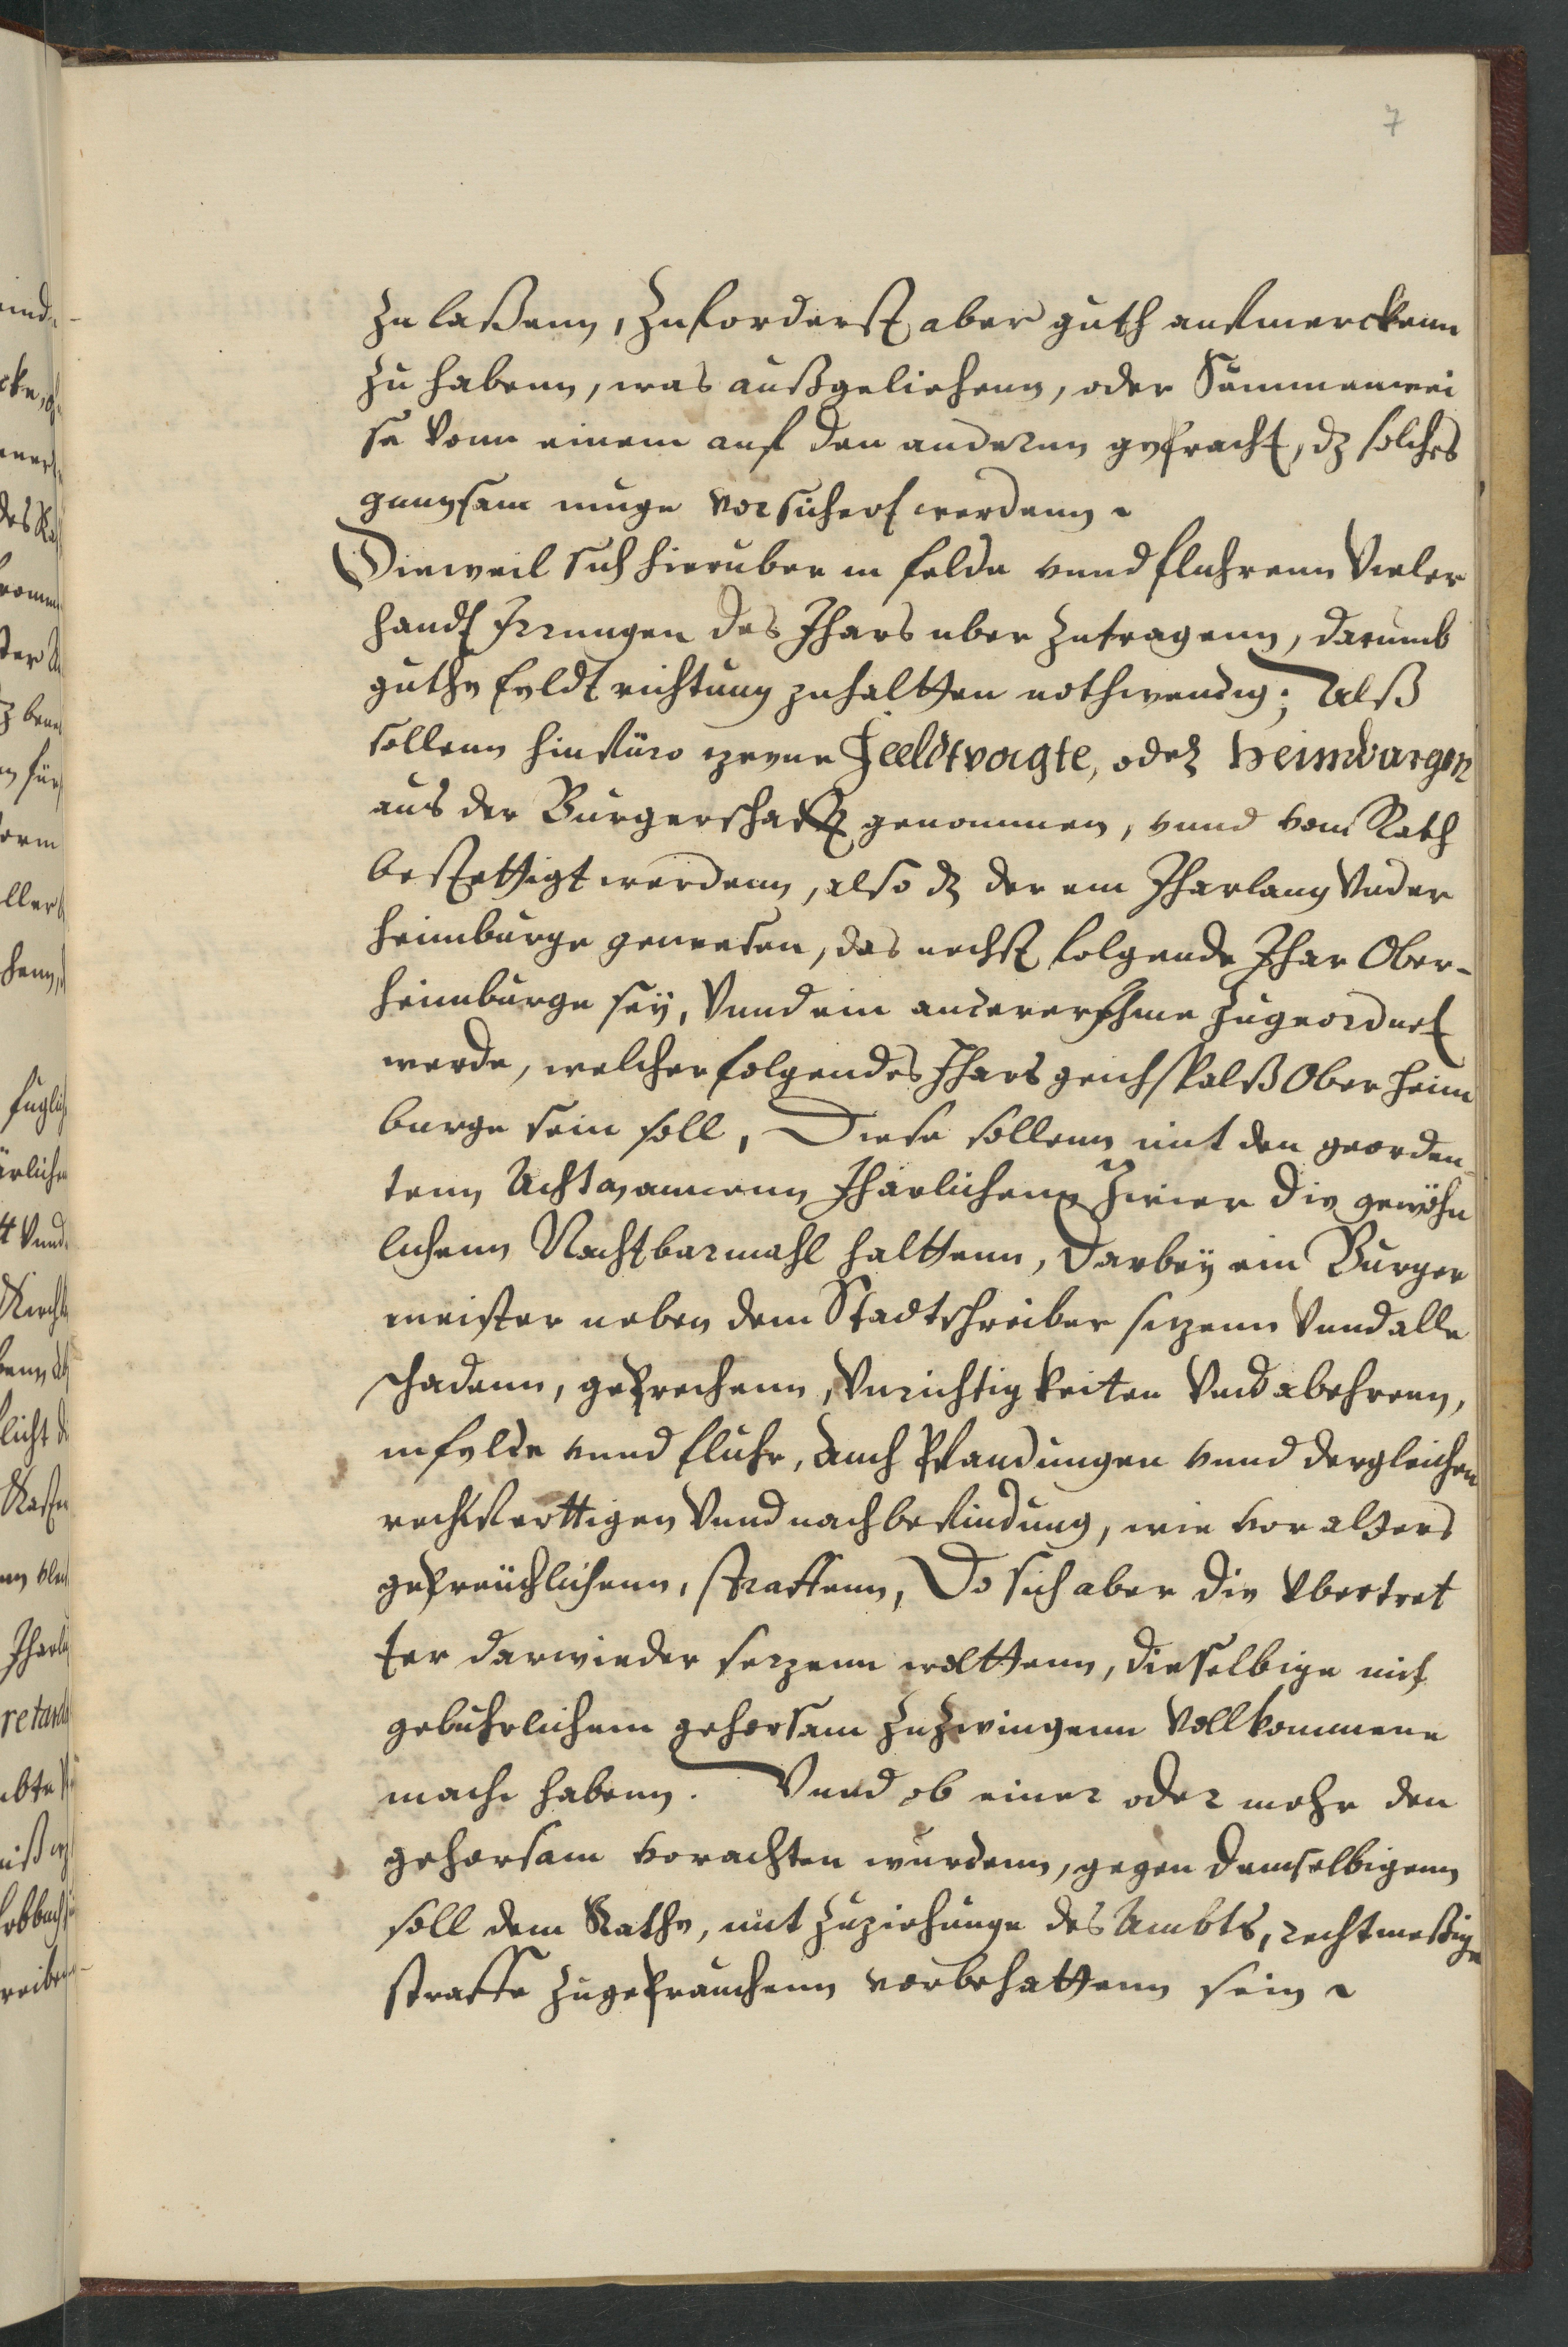 7
Zu laßenn, Zuforderst aber guth aufmerckenn
Zu habenn, was außgeliehenn, oder Summenwei
se Vonn einem auf den anderenn gebracht, dz solches
gnungsam muge vorsichert werdenn
Dieweil sich hieruber in felde vnnd fluhrenn Vieler
handt Irrungen des Ihars uber Zutragenn, darumb
guthe feldt richtung zuhaltten nothwendig; Alß
sollenn hinfüro zweene Feeldtvogte, oder heimburgen
aus der Burgerschafft genommen, vnnd vom Rath
bestettigt werdenn, also dz der ein Iharlang Vnder
heimburge gewesen, das nechst folgende Ihar Ober-
heimburge sey, Vnnd ein anderer Ihme Zugeordnet
werde, welcher folgendes Ihars gleichfals Ober heim
burge sein soll, Diese sollenn mit den geordne-
tenn Achtmannenn Iharlichenn Zwier die gewöhn
lichenn Nachtbarmahl halttenn, Darbey ein Burger
meister neben dem Stadtschreiber sitzenn Vnnd alle
schadenn, gebrechenn, Vnrichtigkeiten Vnd abehrenn,
in felde vnnd fluhr, Auch Pfandungen vnnd dergleichen
rechtfertigen Vnnd nach befindung, wie vor alters
gebreuchlichenn, straffenn, Do sich aber die Vbertret
ter darwieder setzenn wolttenn, dieselbige mit
geburlichem gehorsam Zu Zwingenn Vollkommene
macht habenn. Vnnd ob einer oder mehr den
gehorsam vorachten wurdenn, gegen demselbigenn
soll dem Rathe, mit Zuziehunge des Ambts, rechtmeßige
straffe Zugebrauchenn vorbehaltenn sein